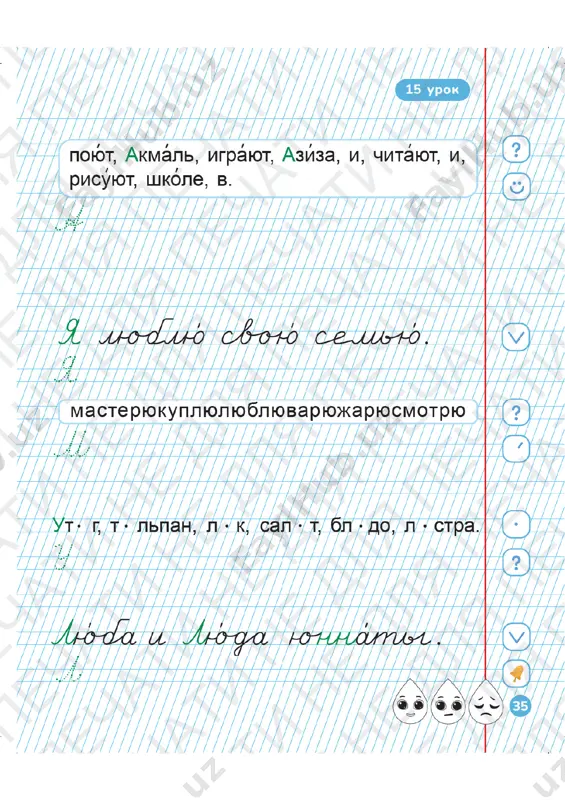 15 урок
пою́т, Акма́ль, игра́ют, Ази́за, и, чита́ют, и,
рису́ют, шко́ле, в.
А
Я люблю́ свою́ семью́.
Я
мастерюкуплюлюблюварюжарюсмотрю
М
Ут · г, т · льпан, л · к, сал · т, бл · до, л · стра.
У
Лю́ба и Лю́да ю́нна́ты.
Л
35